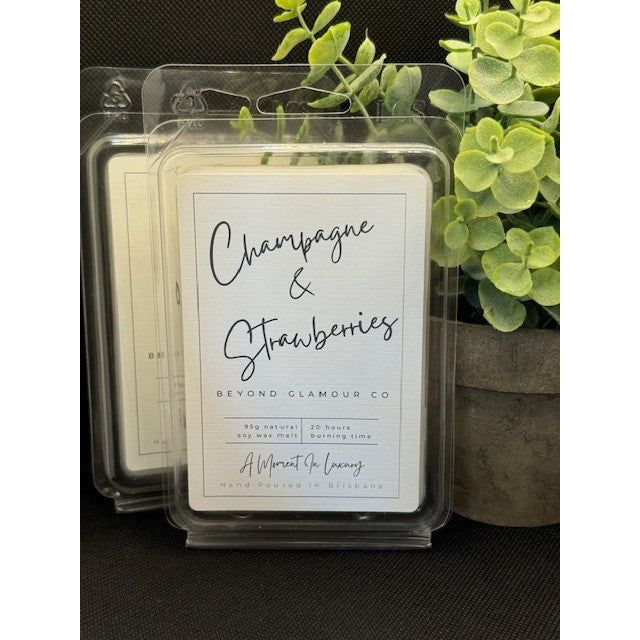 Champagne
&
Strawberries
BEYOND GLAMOUR CO
95g natural 20 hours
soy wax melt burning time
A Moment In Luxury
Hand Poured In Brisbane